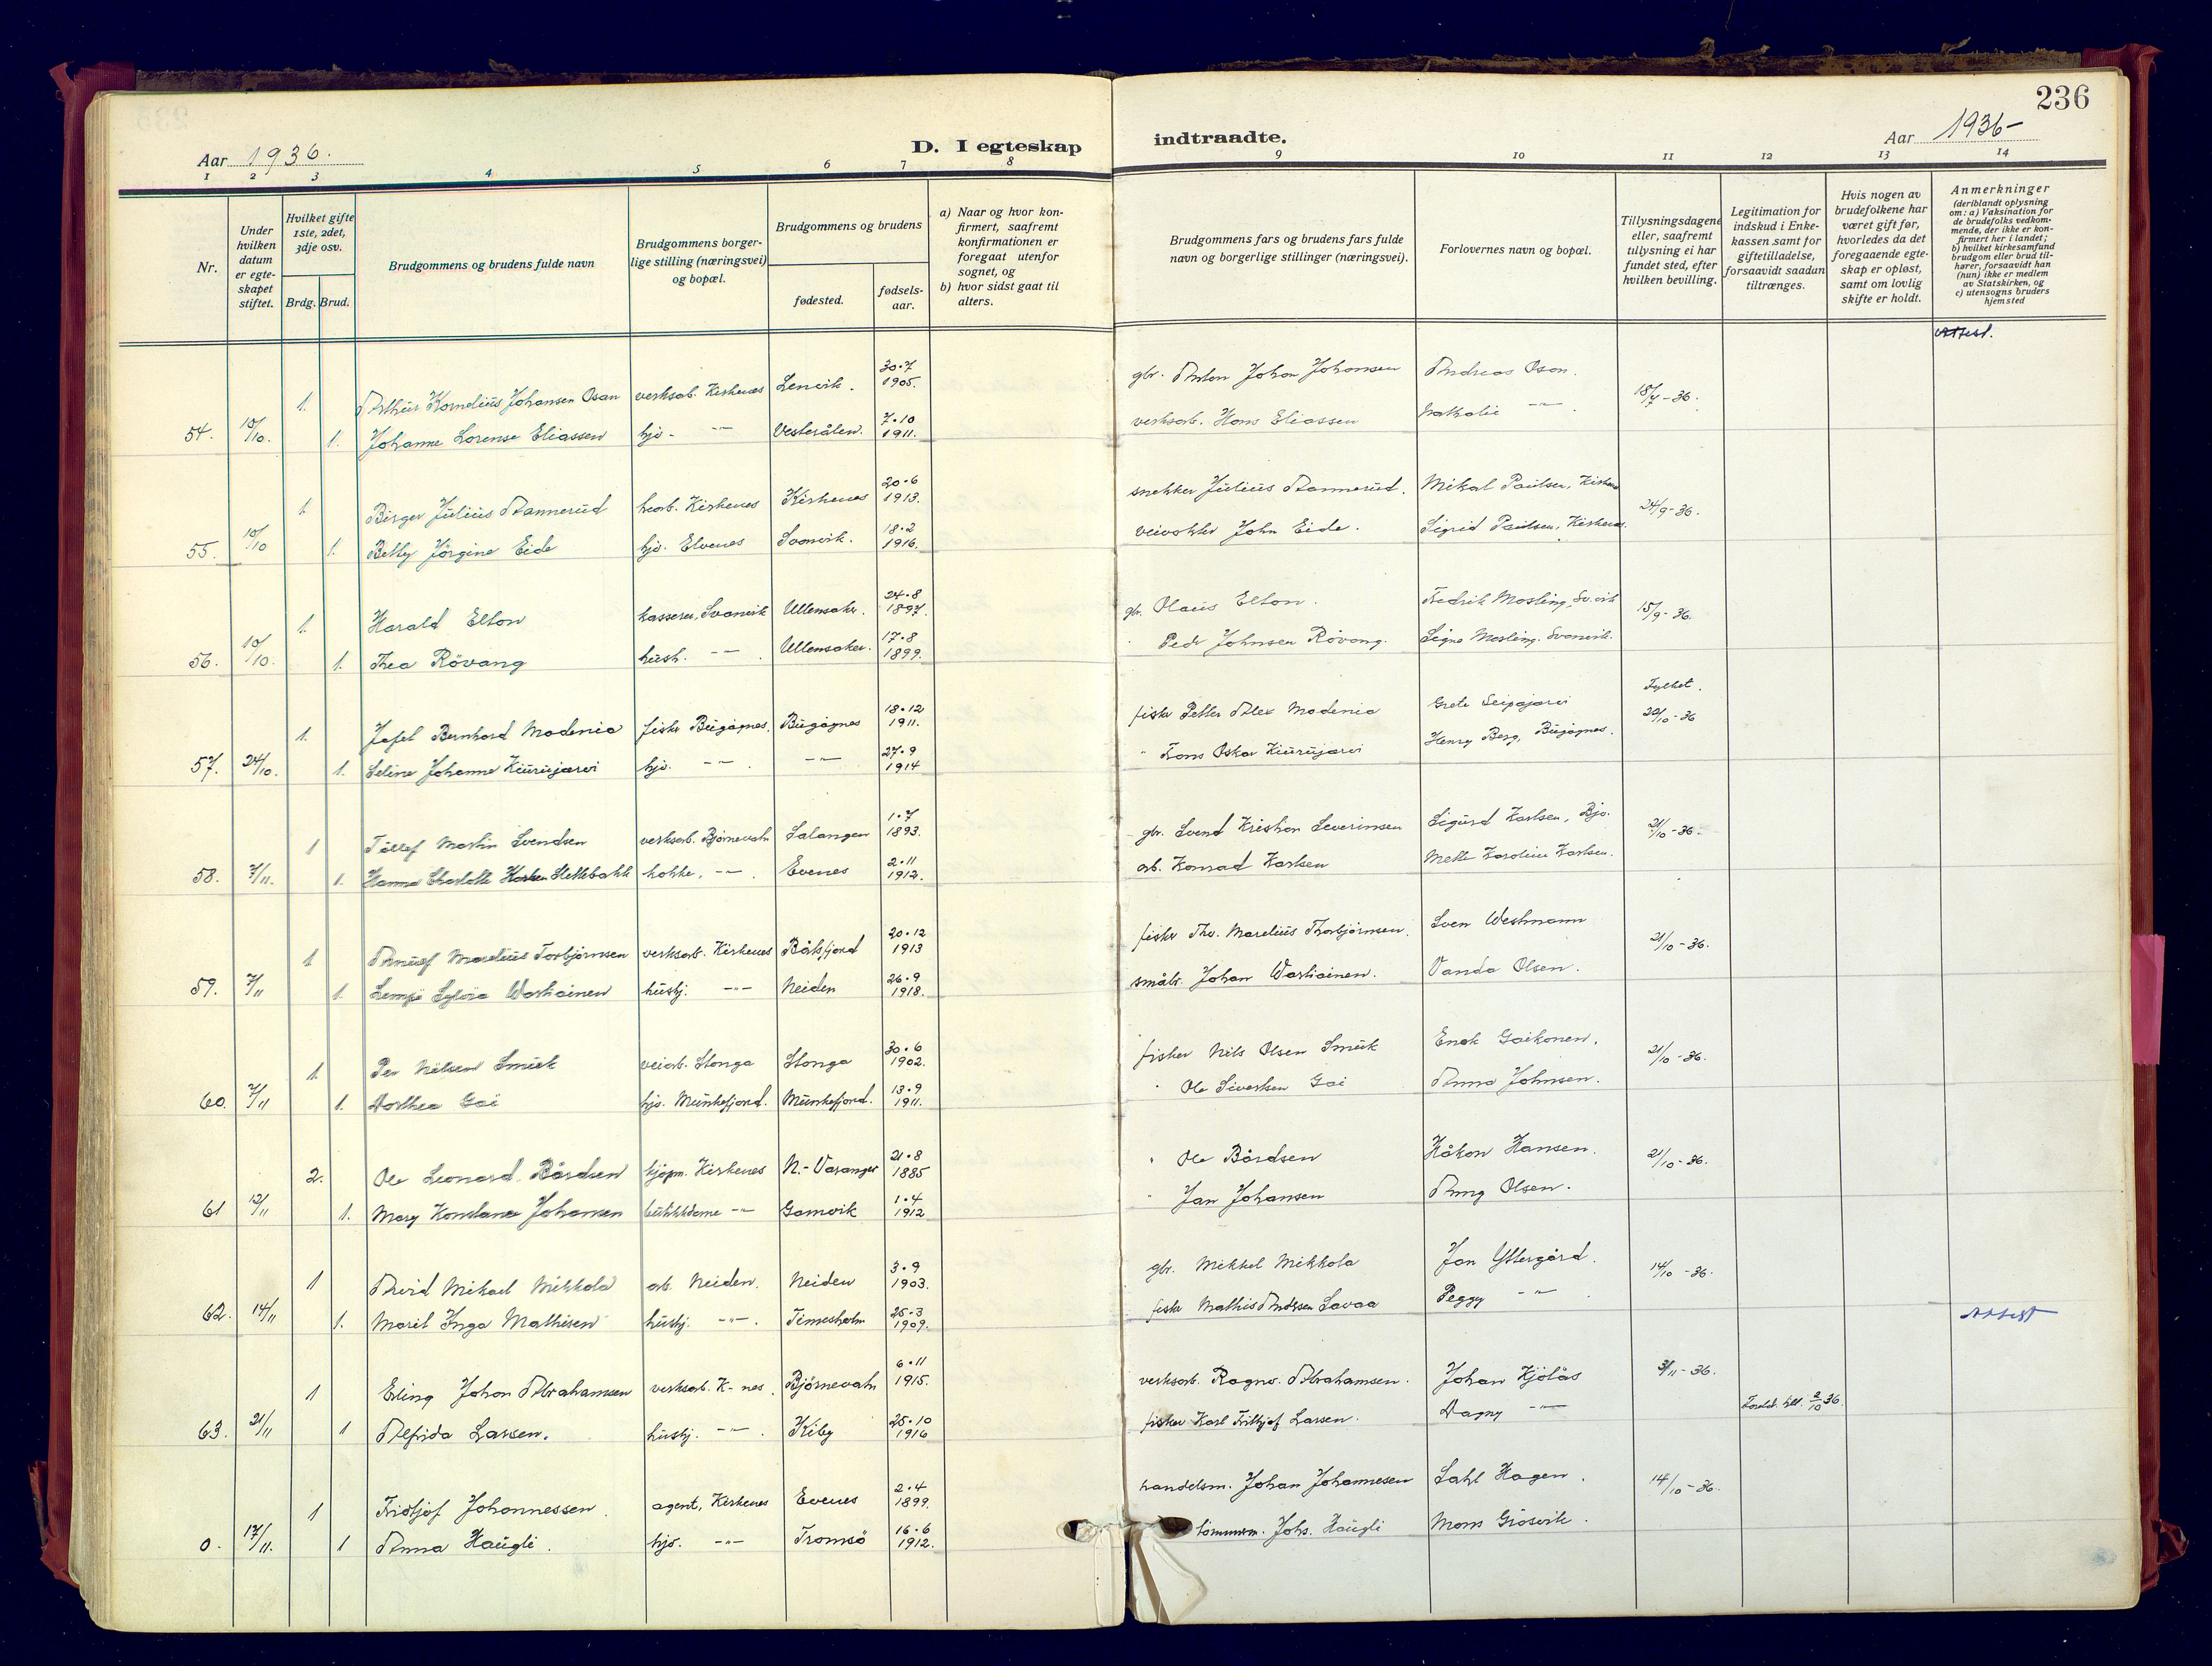 236
Aar 1936.
D. I egteskap indtraadte.
Aar 1936-
1 2 3 4 5 6 7 8 9 10 11 12 13 14
Nr.
Under hvilken datum er egteskapet stiftet.
Hvilket gifte 1ste, 2det, 3dje osv.
Brdg. Brud.
Brudgommens og brudens fulde navn
Brudgommens borgerlige stilling (næringsvei) og bopæl.
Brudgommens og brudens
fødested.
fødselsaar.
a) Naar og hvor konfirmert, saafremt konfirmationen er foregaat utenfor sognet, og
b) hvor sidst gaat til alters.
Brudgommens fars og brudens fars fulde navn og borgerlige stillinger (næringsvei).
Forlovernes navn og bopæl.
Tillysningsdagene eller, saafremt tillysning ei har fundet sted, efter hvilken bevilling.
Legitimation for indskud i Enkekassen samt for giftetilladelse, forsaavidt saadan tiltrænges.
Hvis nogen av brudefolkene har været gift før, hvorledes da det foregaaende egteskap er opløst, samt om lovlig skifte er holdt.
Anmerkninger (deriblandt oplysning om: a) Vaksination for de brudefolks vedkommende, der ikke er konfirmert her i landet; b) hvilket kirkesamfund brudgom eller brud tilhører, forsaavidt han (hun) ikke er medlem av Statskirken, og c) utensogns bruders hjemsted
Attest.
1. Arthur Kornelius Johansen Osan verksarb. Kirkenes Lenvik. 30.7 1905. gbr. Anton Johan Johansen Andreas Osan. 18/7-36.
54. 10/10. 1. Johanne Lorense Eliassen hjv. -"- Vesterålen. 7.10 1911. verksarb. Hans Eliassen Nathalie -"-.
1. Birger Julius Stannerud Kirkenes Kirkenes 20.6 1913. snekker Julius Stannerud. Mikal Paulsen, Kirkenes 24/9-36.
55. 10/10 1. Betty Jörgine Eide hjv. Elvenes Svanvik. 18.2 1916. John Eide. Sigrid Paulsen, Kirkenes.
1. Harald Elton kasserer, Svanvik Ullensaker. 24.8 1897. gbr. Olaus Elton. Fredrik Mosling, Sv.vik 15/9-36.
56. 10/10. 1. Thea Rövang hush. -"-. Ullensaker. 17.8 1899. " Peder Johnsen Rövang. Signe Mosling. Svanvik.
1. Jafet Bernhard Madenia fisker Bugöynes. Bugöynes 18.12 1911. fisker Petter Alex Madenia Grete Seipäjärvi Fylket. 20/10-36
57. 24/10. 1. Seline Johanne Kiurujærvi hjv. -"-. -"- 27.9 1914 " Frans Oskar Kiurujærvi Henry Berg, Bugöynes.
1 Tollef Martin Svendsen verksarb. Björnevatn Salangen 1.7 1893. gbr. Svend Kristian Severinsen Sigurd Karlsen, Bjv. 21/10-36.
58. 7/11. 1. Hanna Charlotte Slettebakk kokke, -"-. Evenes 2.11 1912. arb. Konrad Karlsen Mette Karoline Karlsen.
1 Marelius Torbjörnsen verksarb. Kirkenes Båtsfjord 20.12 1913 fisker Thv. Marelius Thorbjörnsen. Sven Westmann 21/10-36.
59. 7/11 1. Lempi Sylvia Warhainen hushj. -"- Neiden 26.9 1918. småbr. Johan Warhainen. Vanda Olsen.
1. Per Nilsen Smuk veiarb. Stonga Stonga 30.6 1902. fisker Nils Olsen Smuk Enok Gaikonen. 21/10-36.
60. 7/11 1. Dorthea Gai hjv. Munkefjord. Munkefjord. 13.9 1911. " Ole Sivertsen Gai Anna Johnsen.
2. Ole Leonard Bårdsen kjöpm. Kirkenes N.-Varanger 21.8 1885 " Ole Bårdsen Håkon Hansen. 21/10-36.
61 12/11 1. Mary Konstanse Johansen butikkdame -"- Gamvik 1.4 1912 " Jan Johansen Olsen.
1 Arvid Mikael Mikkola arb. Neiden. Neiden 3.9 1903. gbr. Mikkel Mikkola Jon Yttergård. 14/10-36.
62. 14/11 1. Marit Inga Mathisen hushj. -"-. 25.3 1909. fisker Mathis Andersen Savaa Peggy -"-.
Attest
1 Erling Johan Abrahamsen verksarb. K-nes. Björnevatn 6.11 1915. verksarb. Ragnv. Abrahamsen. Johan Kjölås 3/11-36.
63. 21/11 1 Alfrida Larsen. hushj. -"-. Kiby 25.10 1916 fisker Karl Frithjof Larsen. Dagny -"- Foreld. till. 2/10 36.
1 Fridtjof Johannessen. agent, Kirkenes Evenes 2.4 1899. handelsm. Johan Johannesen Hagen. 14/10-36.
0. 17/11. 1 Anna Haugli. hjv. -"- Tromsö 16.6 1912. tömmerm. Johs. Haugli Mons Gråsvik.